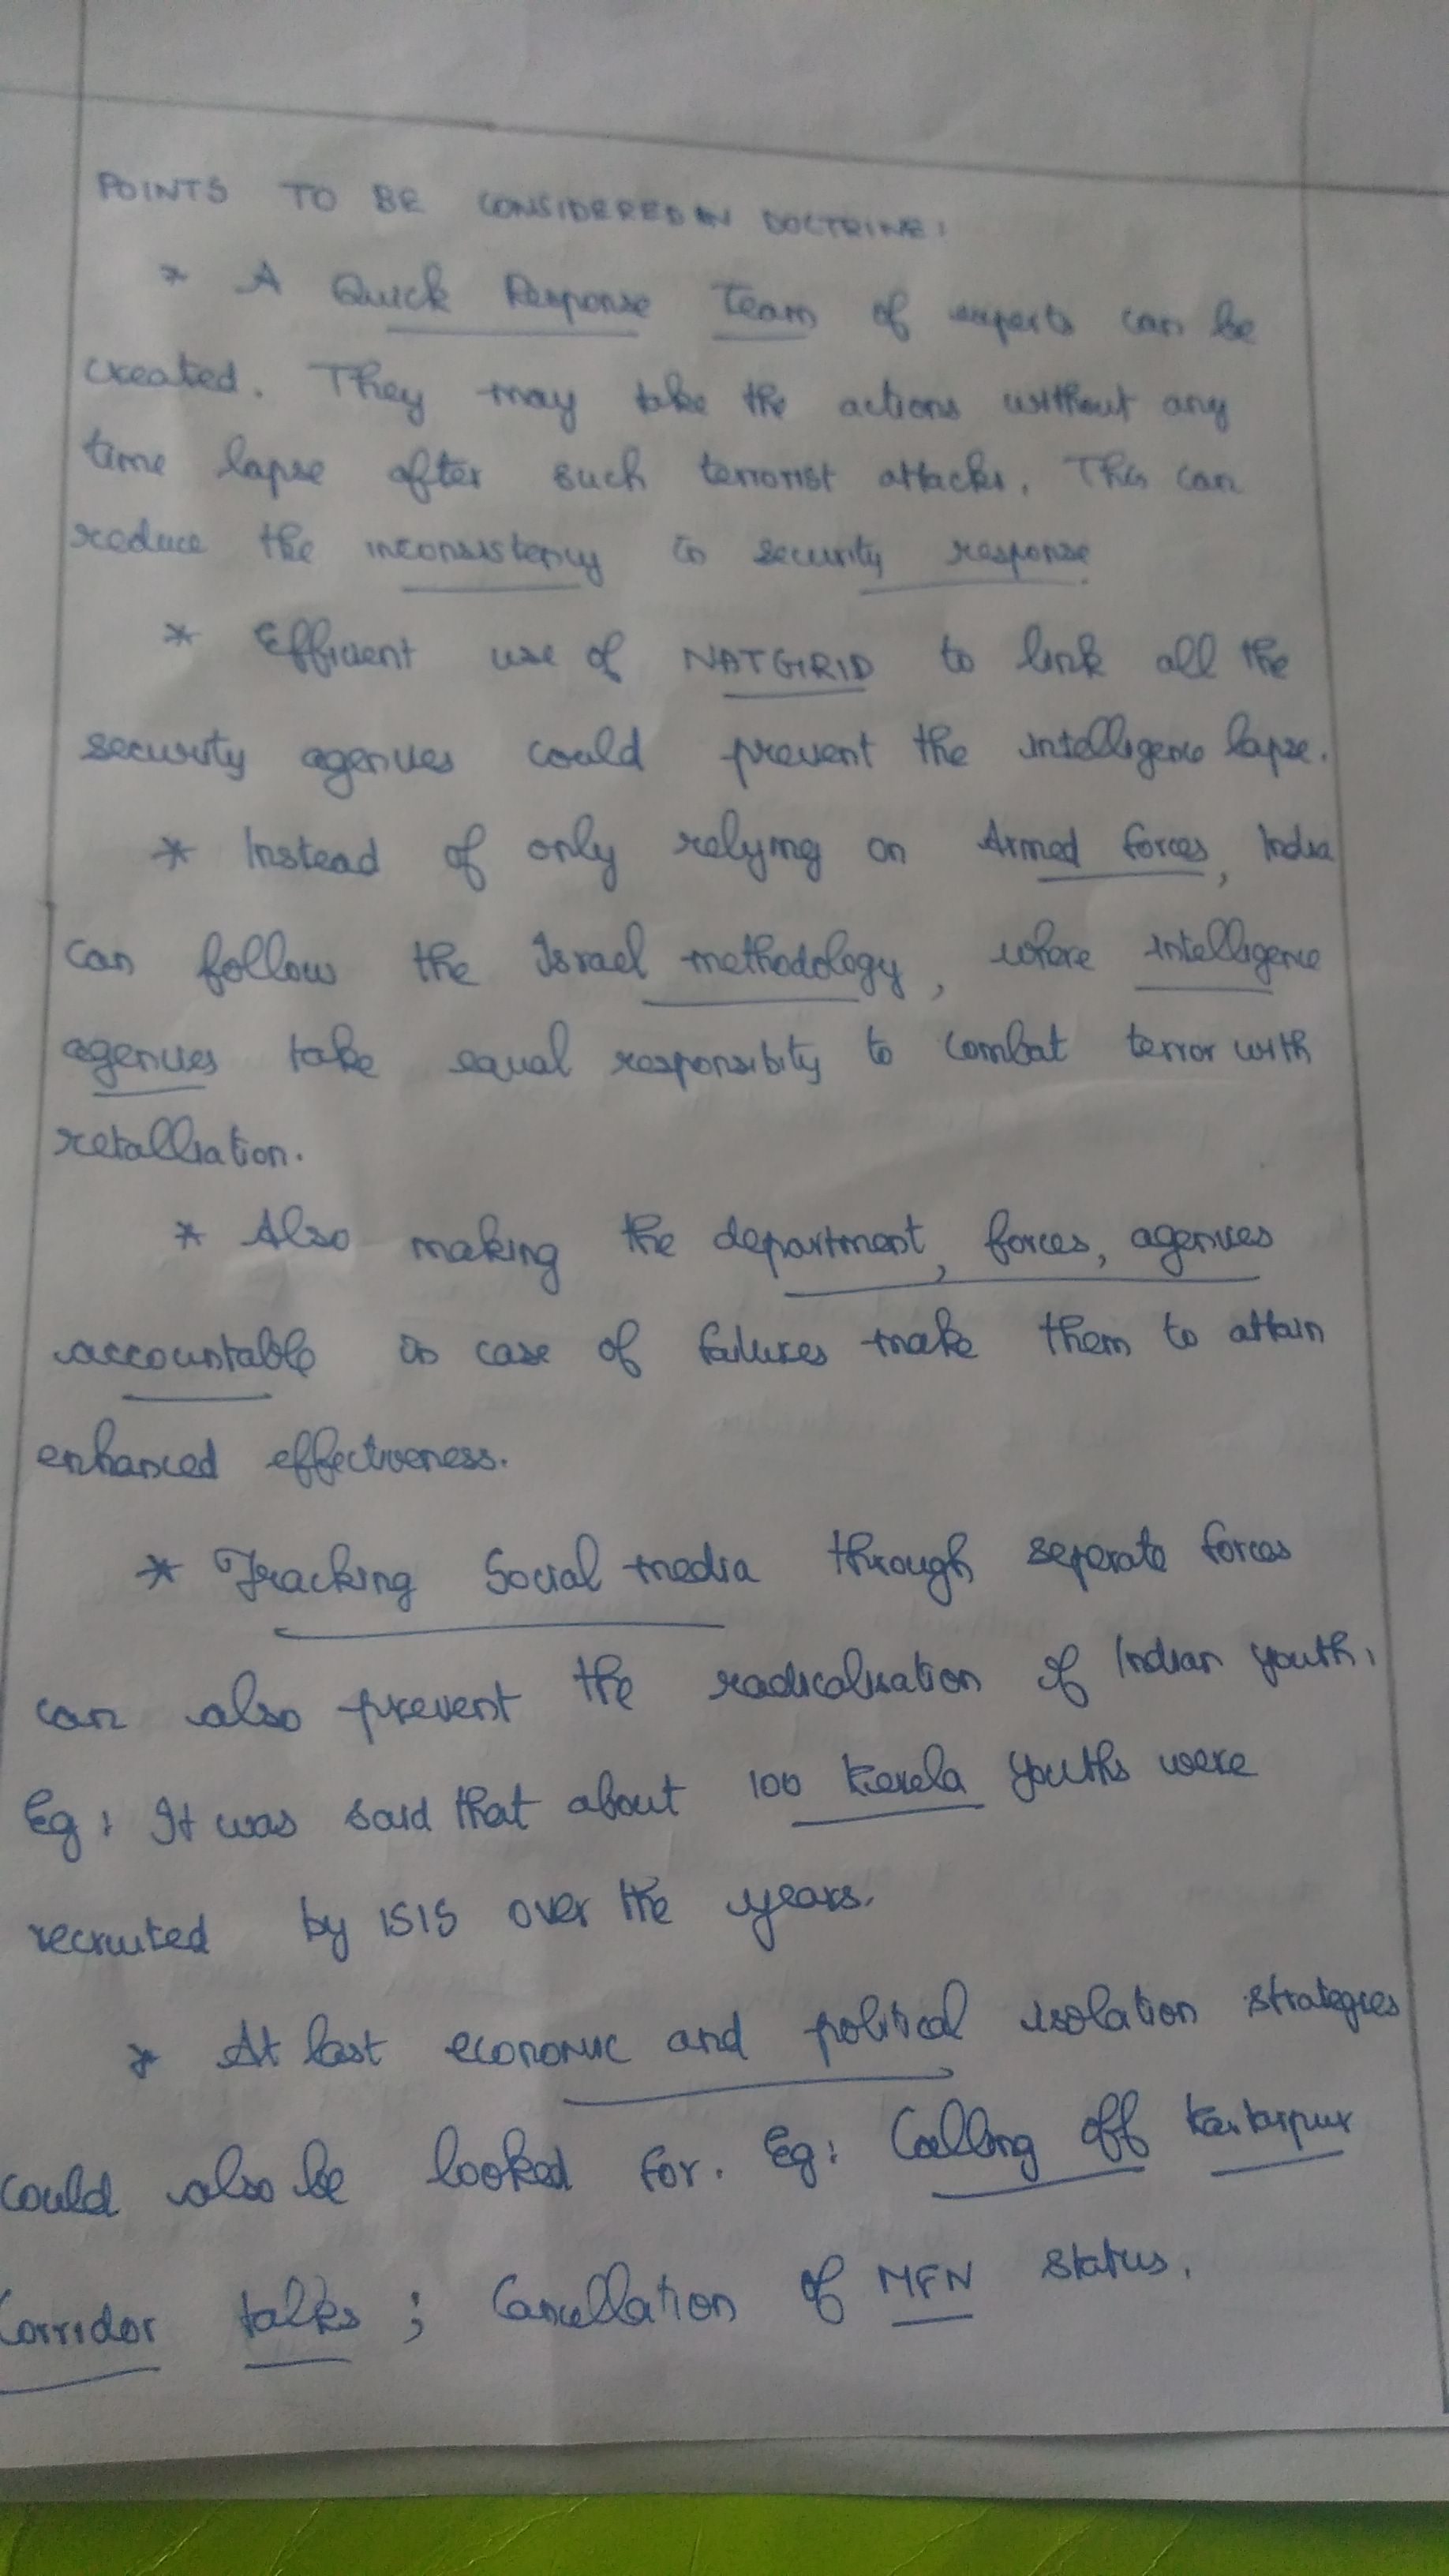 POINTS TO BE CONSIDERED IN DOCTRINE:
* A Quick Response Team of experts can be
created. They may take the actions without any
time lapse after such terrorist attacks. This can
reduce the inconsistency in security response.
* Efficient use of NATGRID to link all the
security agencies could prevent the intelligence lapse.
* Instead of only relying on Armed forces, India
can follow the Israel methodology, where intelligence
agencies take equal responsibity to combat terror with
retalliation.
* Also making the department, forces, agencies
accountable in case of failures make them to attain
enhanced effectiveness.
* Tracking Social media through seperate forces
can also prevent the radicalisation of Indian youth.
Eg: It was said that about 100 Kerela youths were
recruited by ISIS over the years.
* At last economic and political isolation strategies
could also be looked for. Eg: Calling off Kartarpur
Corridor talks; Cancellation of MFN status.